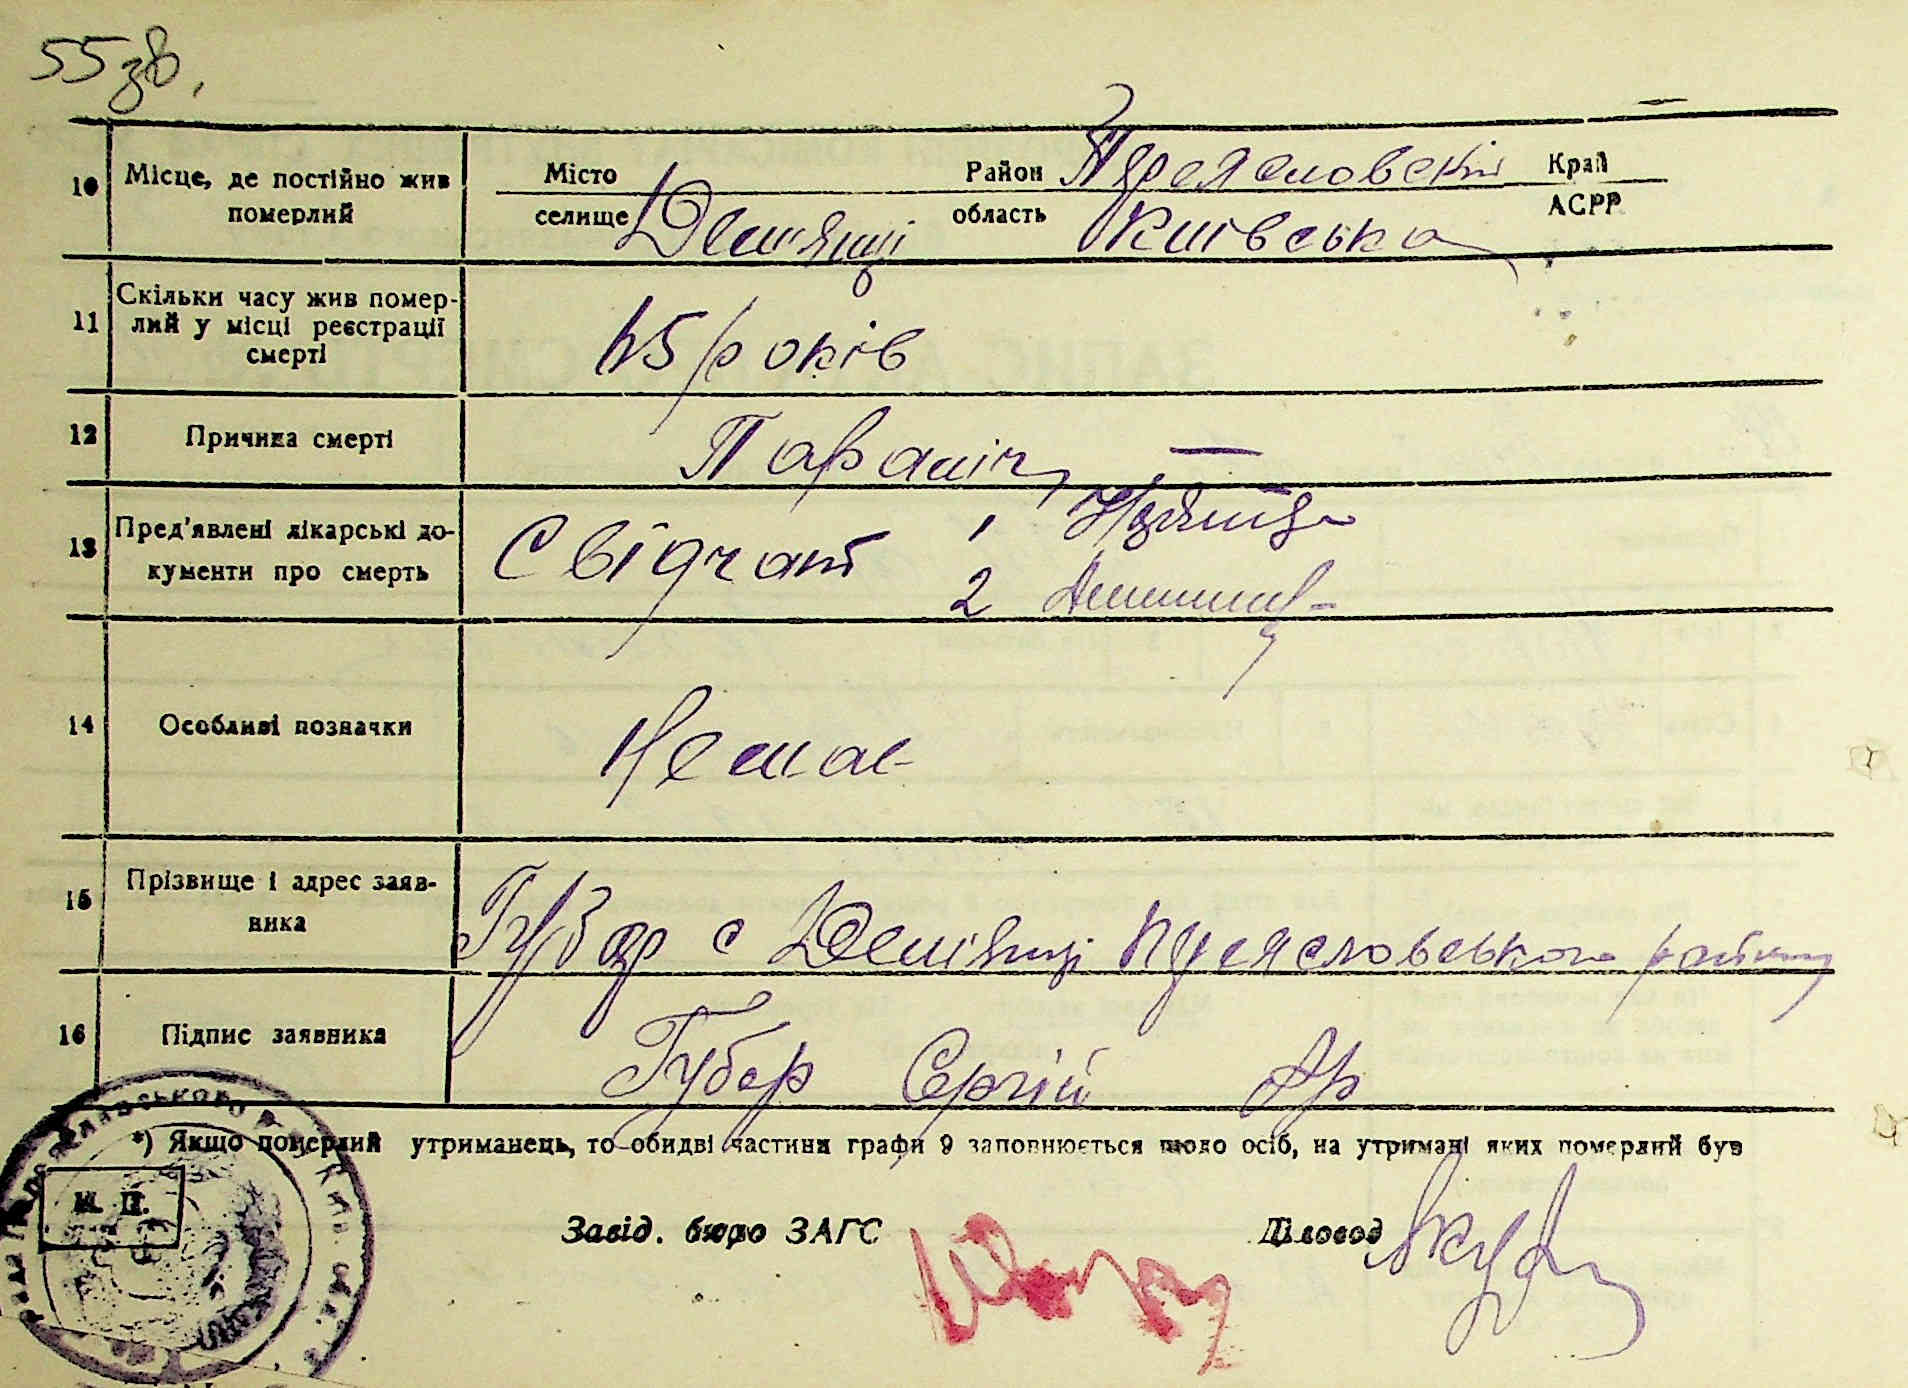 55 зв.
10 Місце, де постійно жив померлий Місто Район Переясловский Край
селище Демʼянці область Київська АСРР
11 Скільки часу жив помер-
лий у місці реєстрації
смерті
45 років
12 Причина смерті Параліч
13 Пред'явлені лікарські до-
кументи про смерть
Свідчать 1
2
14 Особливі позначки Немає
15 Прізвище і адрес заяв-
ника
Губар с Демівнці Переясловського району
16 Підпис заявника Губар Сергій
*) Якщо померлий утриманець, то обидві частини графи 9 заповнюється щодо осіб, на утримані яких померлий був
М. П.
Завід. бюро ЗАГС Діловод